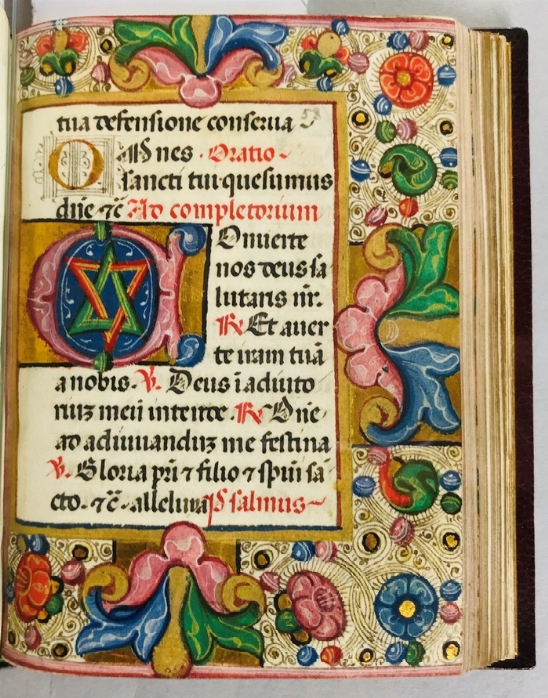 tua defensione conserua 58
OMnes · Oratio ~
sancti tui·quesumus
dn̄e ⁊c̄ Ad completorium
COnuerte
nos deus sa
lutaris nr̄.
℟ Et auer
te iram tuā
a nobis · ℣. Deus ī adiuto
riuꝫ meū intende · ℟ Dn̄e·
ad adiuuanduꝫ me festina
℣. Gloria pr̄i ⁊ filio ⁊ spūi sā
cto · ⁊c̄ · alleluia Psalmus ~